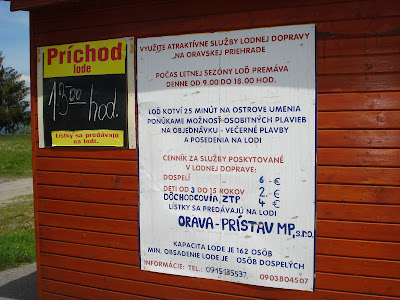 Príchod
lode
13 00 hod.
Lístky sa predávajú
na lodi.
VYUŽITE ATRAKTÍVNE SLUŽBY LODNEJ DOPRAVY
„NA ORAVSKEJ PRIEHRADE
POČAS LETNEJ SEZÓNY LOĎ PREMÁVA
DENNE OD 9.00 DO 18.00 HOD.
LOĎ KOTVÍ 25 MINÚT NA OSTROVE UMENIA
PONÚKAME MOŽNOSŤ OSOBITNÝCH PLAVIEB
NA OBJEDNÁVKU - VEČERNÉ PLAVBY
A POSEDENIA NA LODI
CENNÍK ZA SLUŽBY POSKYTOVANÉ
V LODNEJ DOPRAVE:
DOSPELÍ 6 - €
DETI OD 3 DO 15 ROKOV 2 - €
DÔCHODCOVIA, ZTP 4 €
LÍSTKY SA PREDÁVAJÚ NA LODI
ORAVA - PRÍSTAV MP, s.r.o.
KAPACITA LODE JE 162 OSÔB
MIN. OBSADENIE LODE JE OSÔB DOSPELÝCH
INFORMÁCIE: TEL.: 0903804507